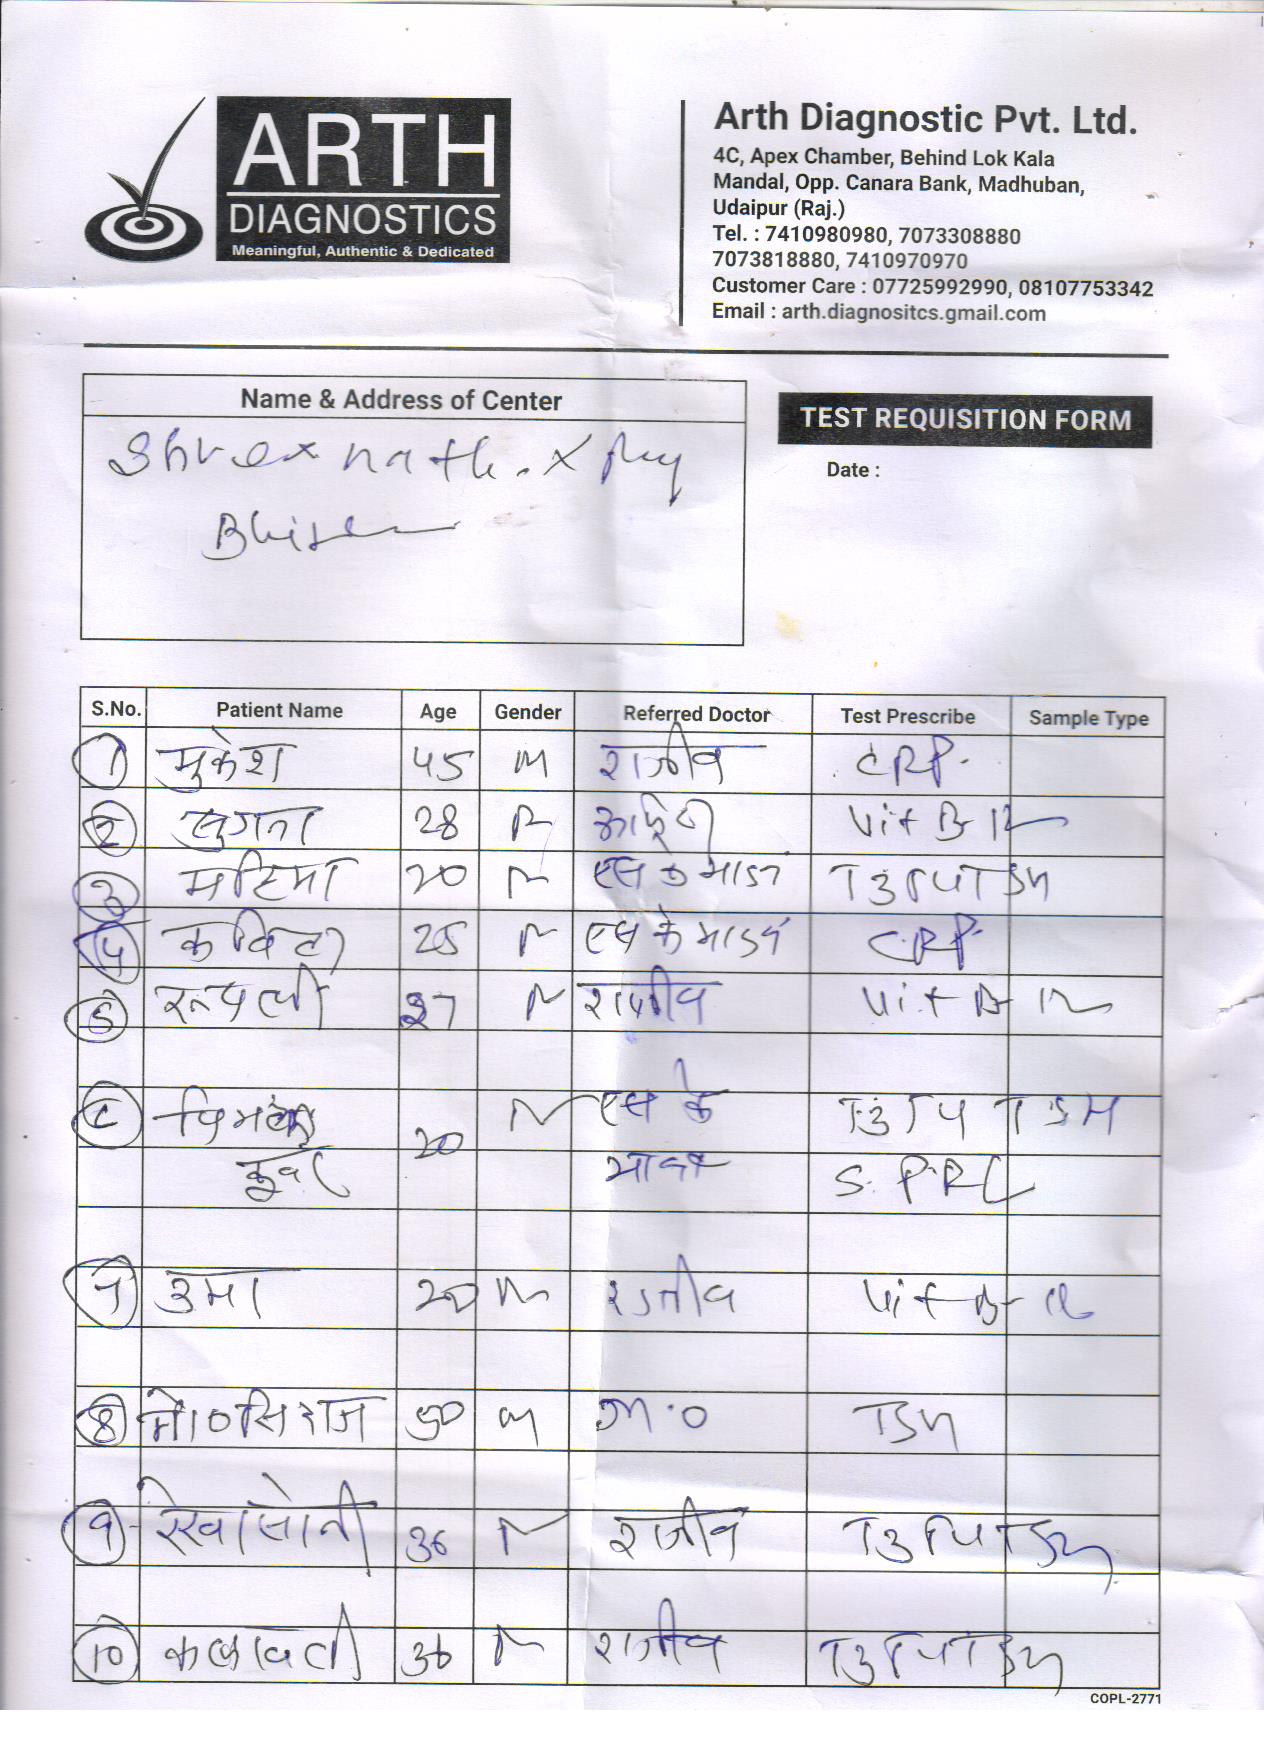 ARTH
DIAGNOSTICS
Meaningful, Authentic & Dedicated
Arth Diagnostic Pvt. Ltd.
4C, Apex Chamber, Behind Lok Kala
Mandal, Opp. Canara Bank, Madhuban,
Udaipur (Raj.)
Tel. : 7410980980, 7073308880
7073818880, 7410970970
Customer Care : 07725992990, 08107753342
Email : arth.diagnositcs.gmail.com
Name & Address of Center
TEST REQUISITION FORM
Date :
S.No. Patient Name Age Gender Referred Doctor Test Prescribe Sample Type
1 मुकेश 45 M राजीव CRP
2 सुगना 28 Vit B 12
3 महिमा 20 एस के T3 T4 TSH
4 कविता 25 एस के CRP
5 27 राजीव Vit B 12
एस के T3 T4 TSH
20
कुंवर
7 उमा 20 राजीव Vit B 12
8 मो0 सिराज 50 M M.O TSH
9 रेखा सोनी 36 राजीव T3 T4 TSH
10 कलावती 36 राजीव T3 T4 TSH
COPL-2771